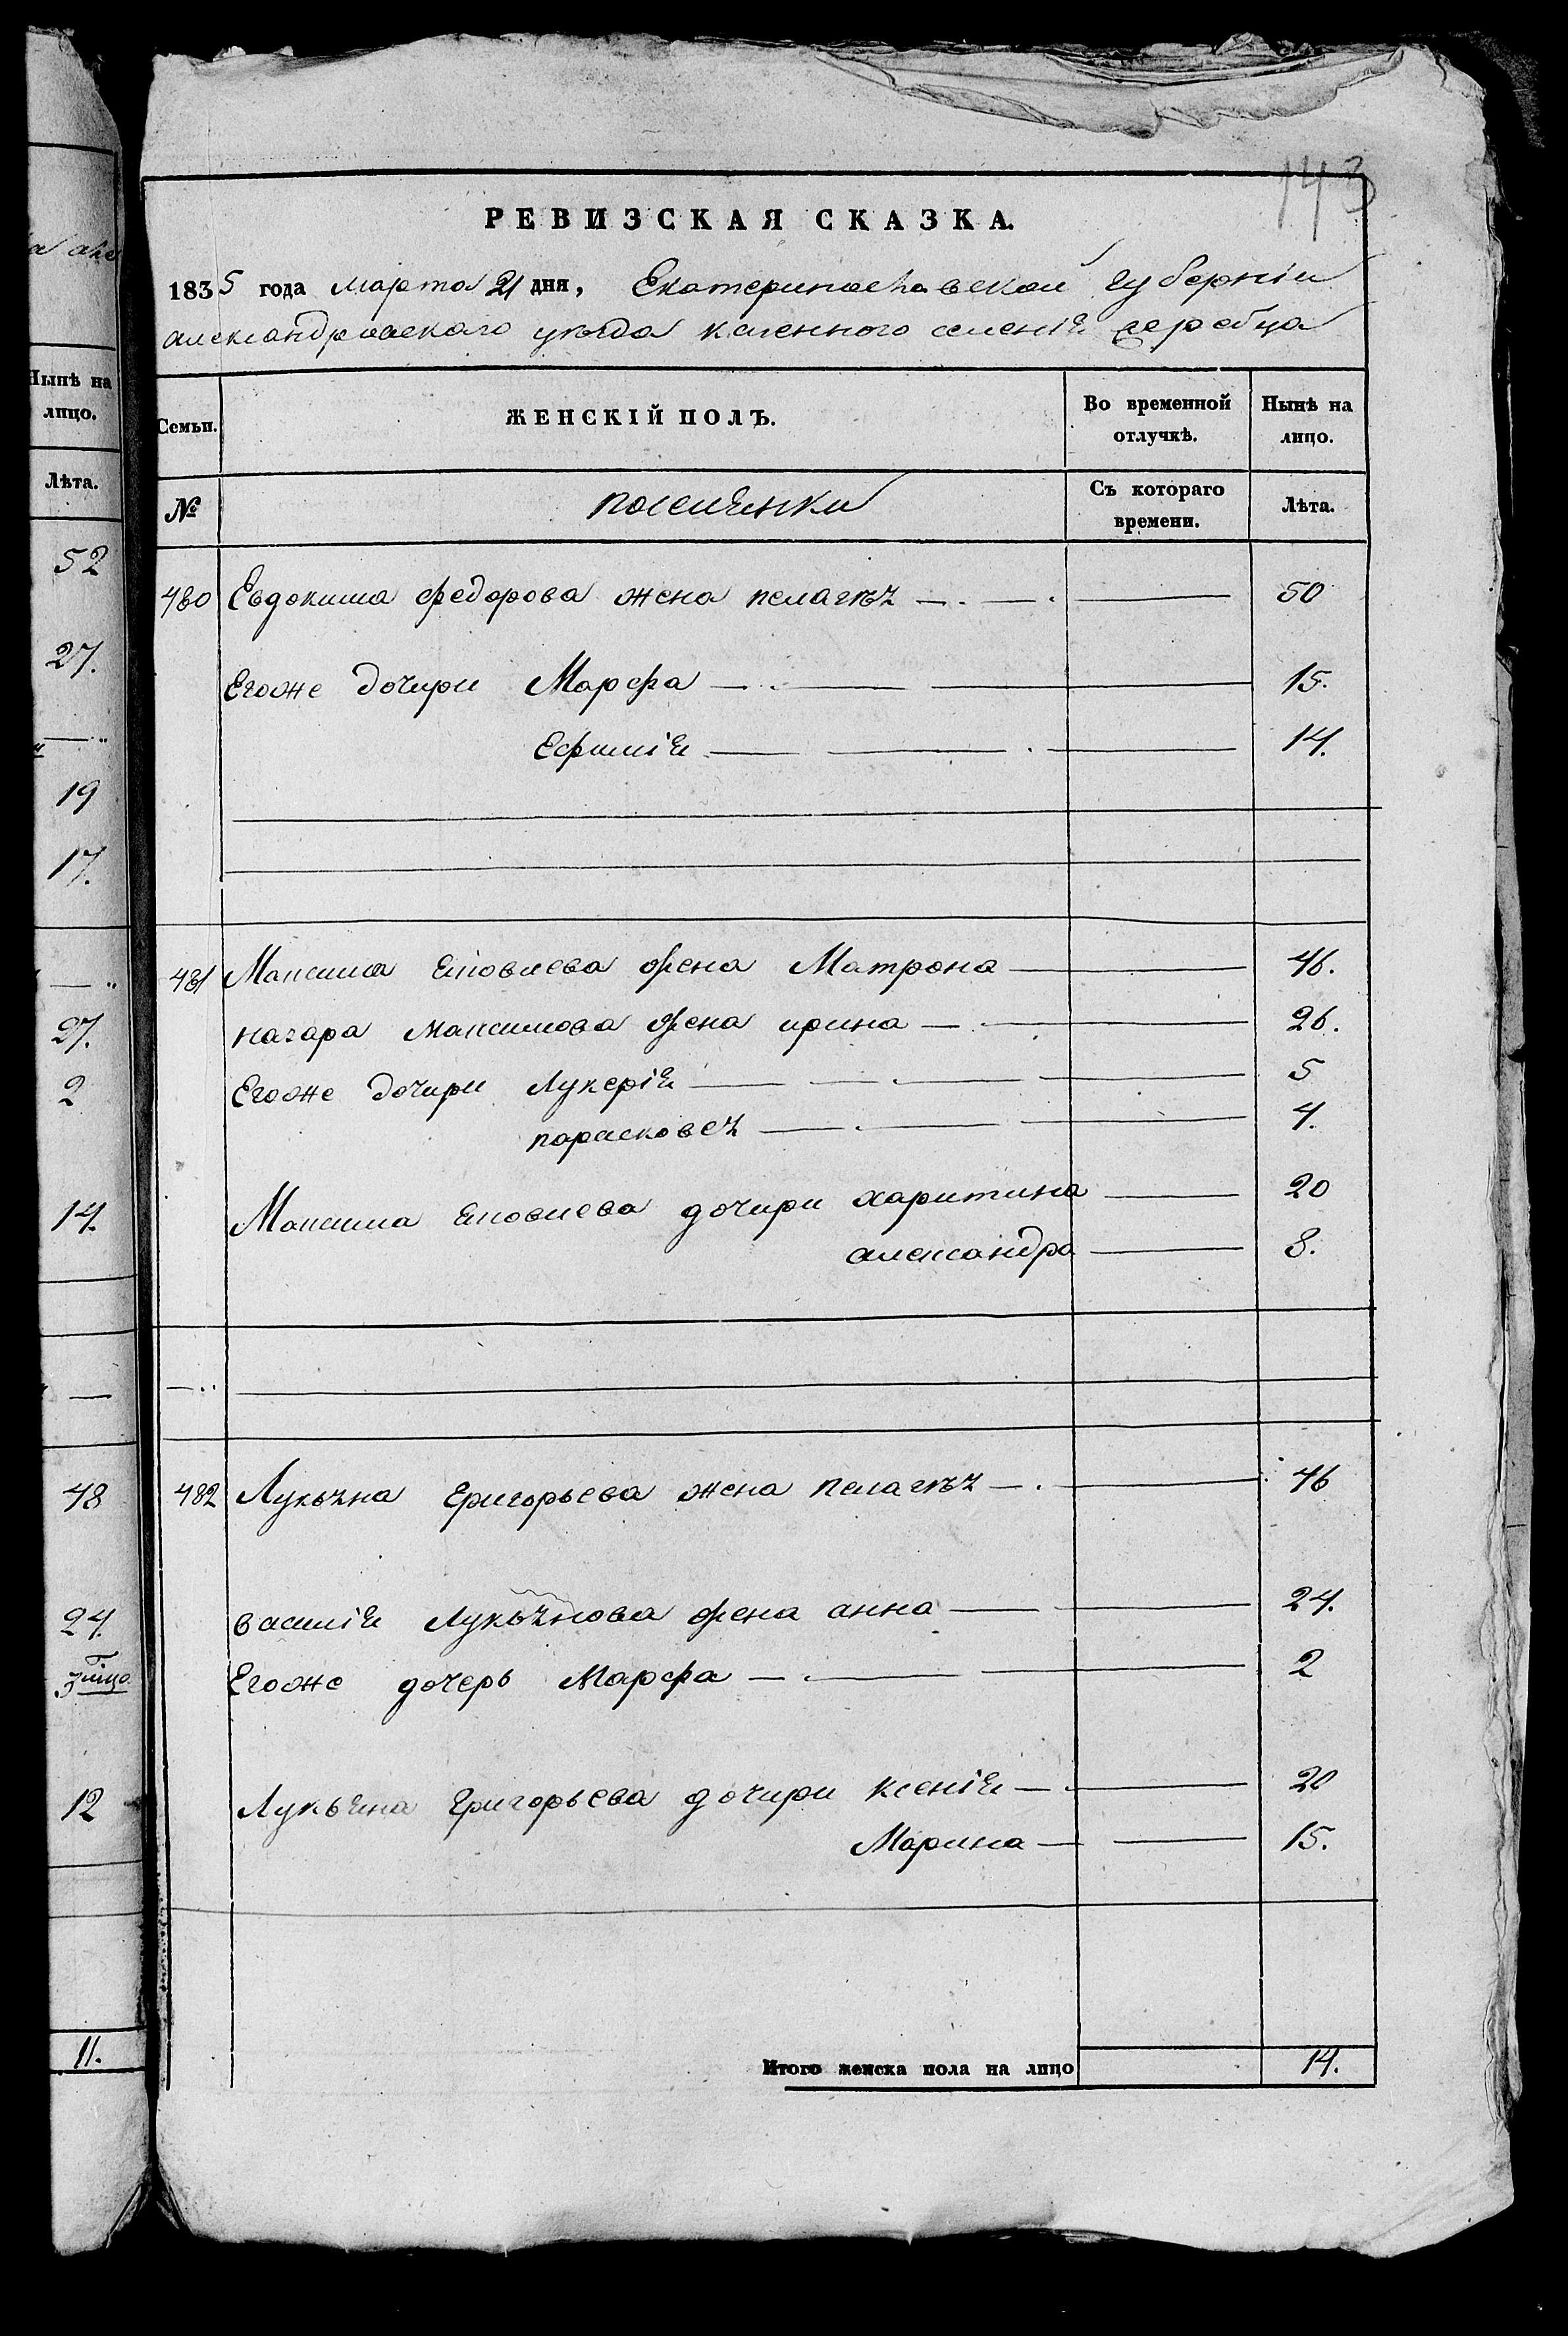 а
Нынѣ на
лицо.
Лѣта.
52
27.
19
17.
27.
2
14.
48
24.
12
11.
143
РЕВИЗСКАЯ СКАЗКА.
1835 года марта 21 дня, Екатеринославской губерніи
александровскаго уѣзда казенного селенія жеребца
Семьи. ЖЕНСКІЙ ПОЛЪ. Во временной отлучкѣ. Нынѣ на лицо.
№ поселянки Съ котораго времени. Лѣта.
480 Евдокима федорова жена пелагѣя 50
Егоже дочири Марфа 15.
Ефимія 14.
481 Максима яковлева жена Матрона 46.
назара максимова жена ирина 26.
Егоже дочири Лукерія 5
парасковея 4.
Максима яковлева дочири харитина 20
александра 8.
482 Лукьяна григорьева жена пелагѣя 46
василія Лукьянова жена анна 24.
Егоже дочерь Марфа 2
Лукьяна григорьева дочири ксенія 20
Марина 15.
Итого женска пола на лицо 14.